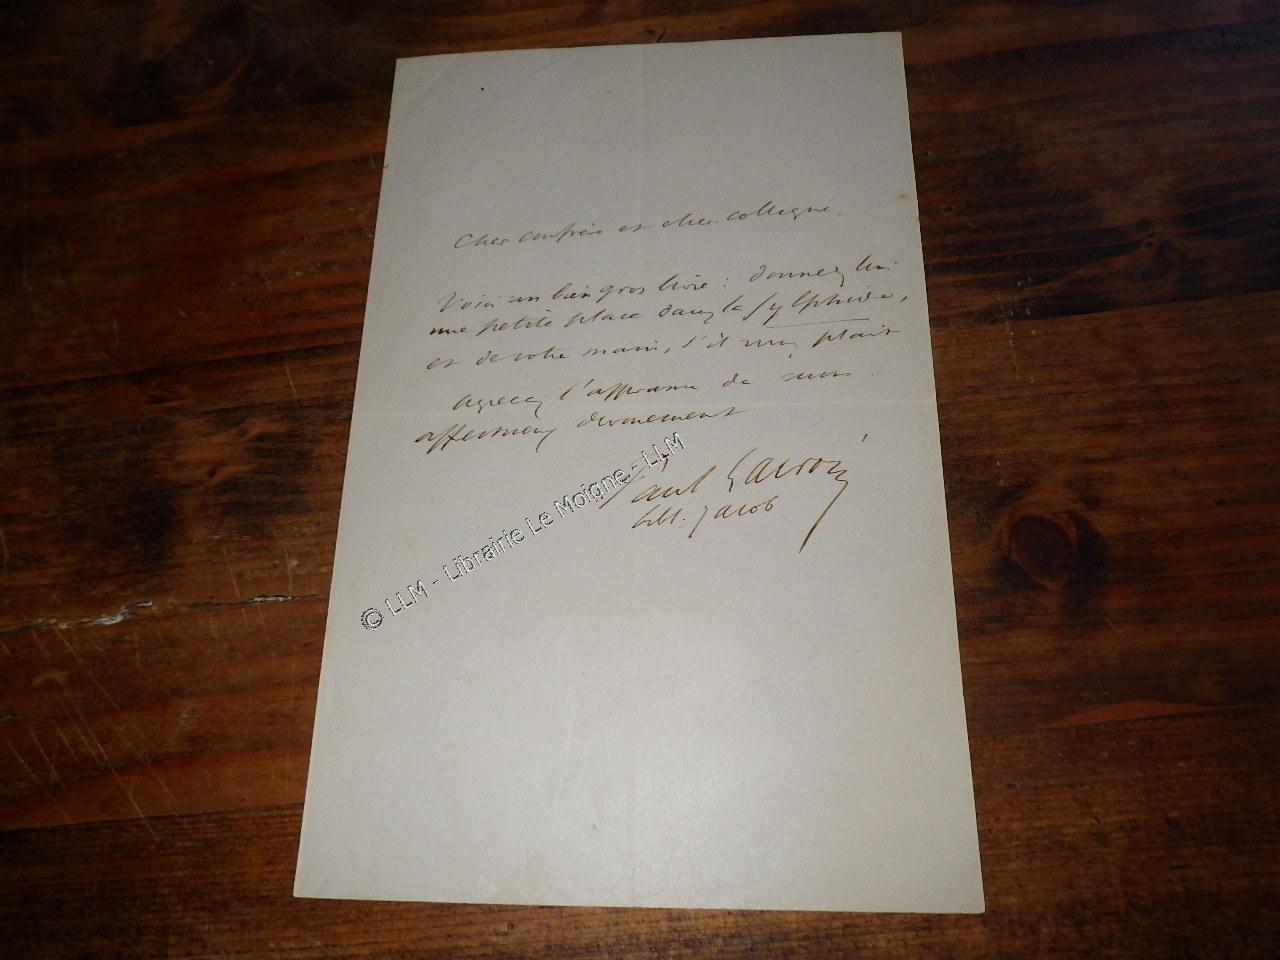 Cher confrère et cher collègue.
Voici un bien gros livre : donnez lui
une petite place dans la Sylphide,
et de votre main, s'il vous plait
Agréez l'assurance de mon
affectueux dévouement
Paul Lacroix
bibl. Jacob
© LLM - Librairie Le Moigne - LLM